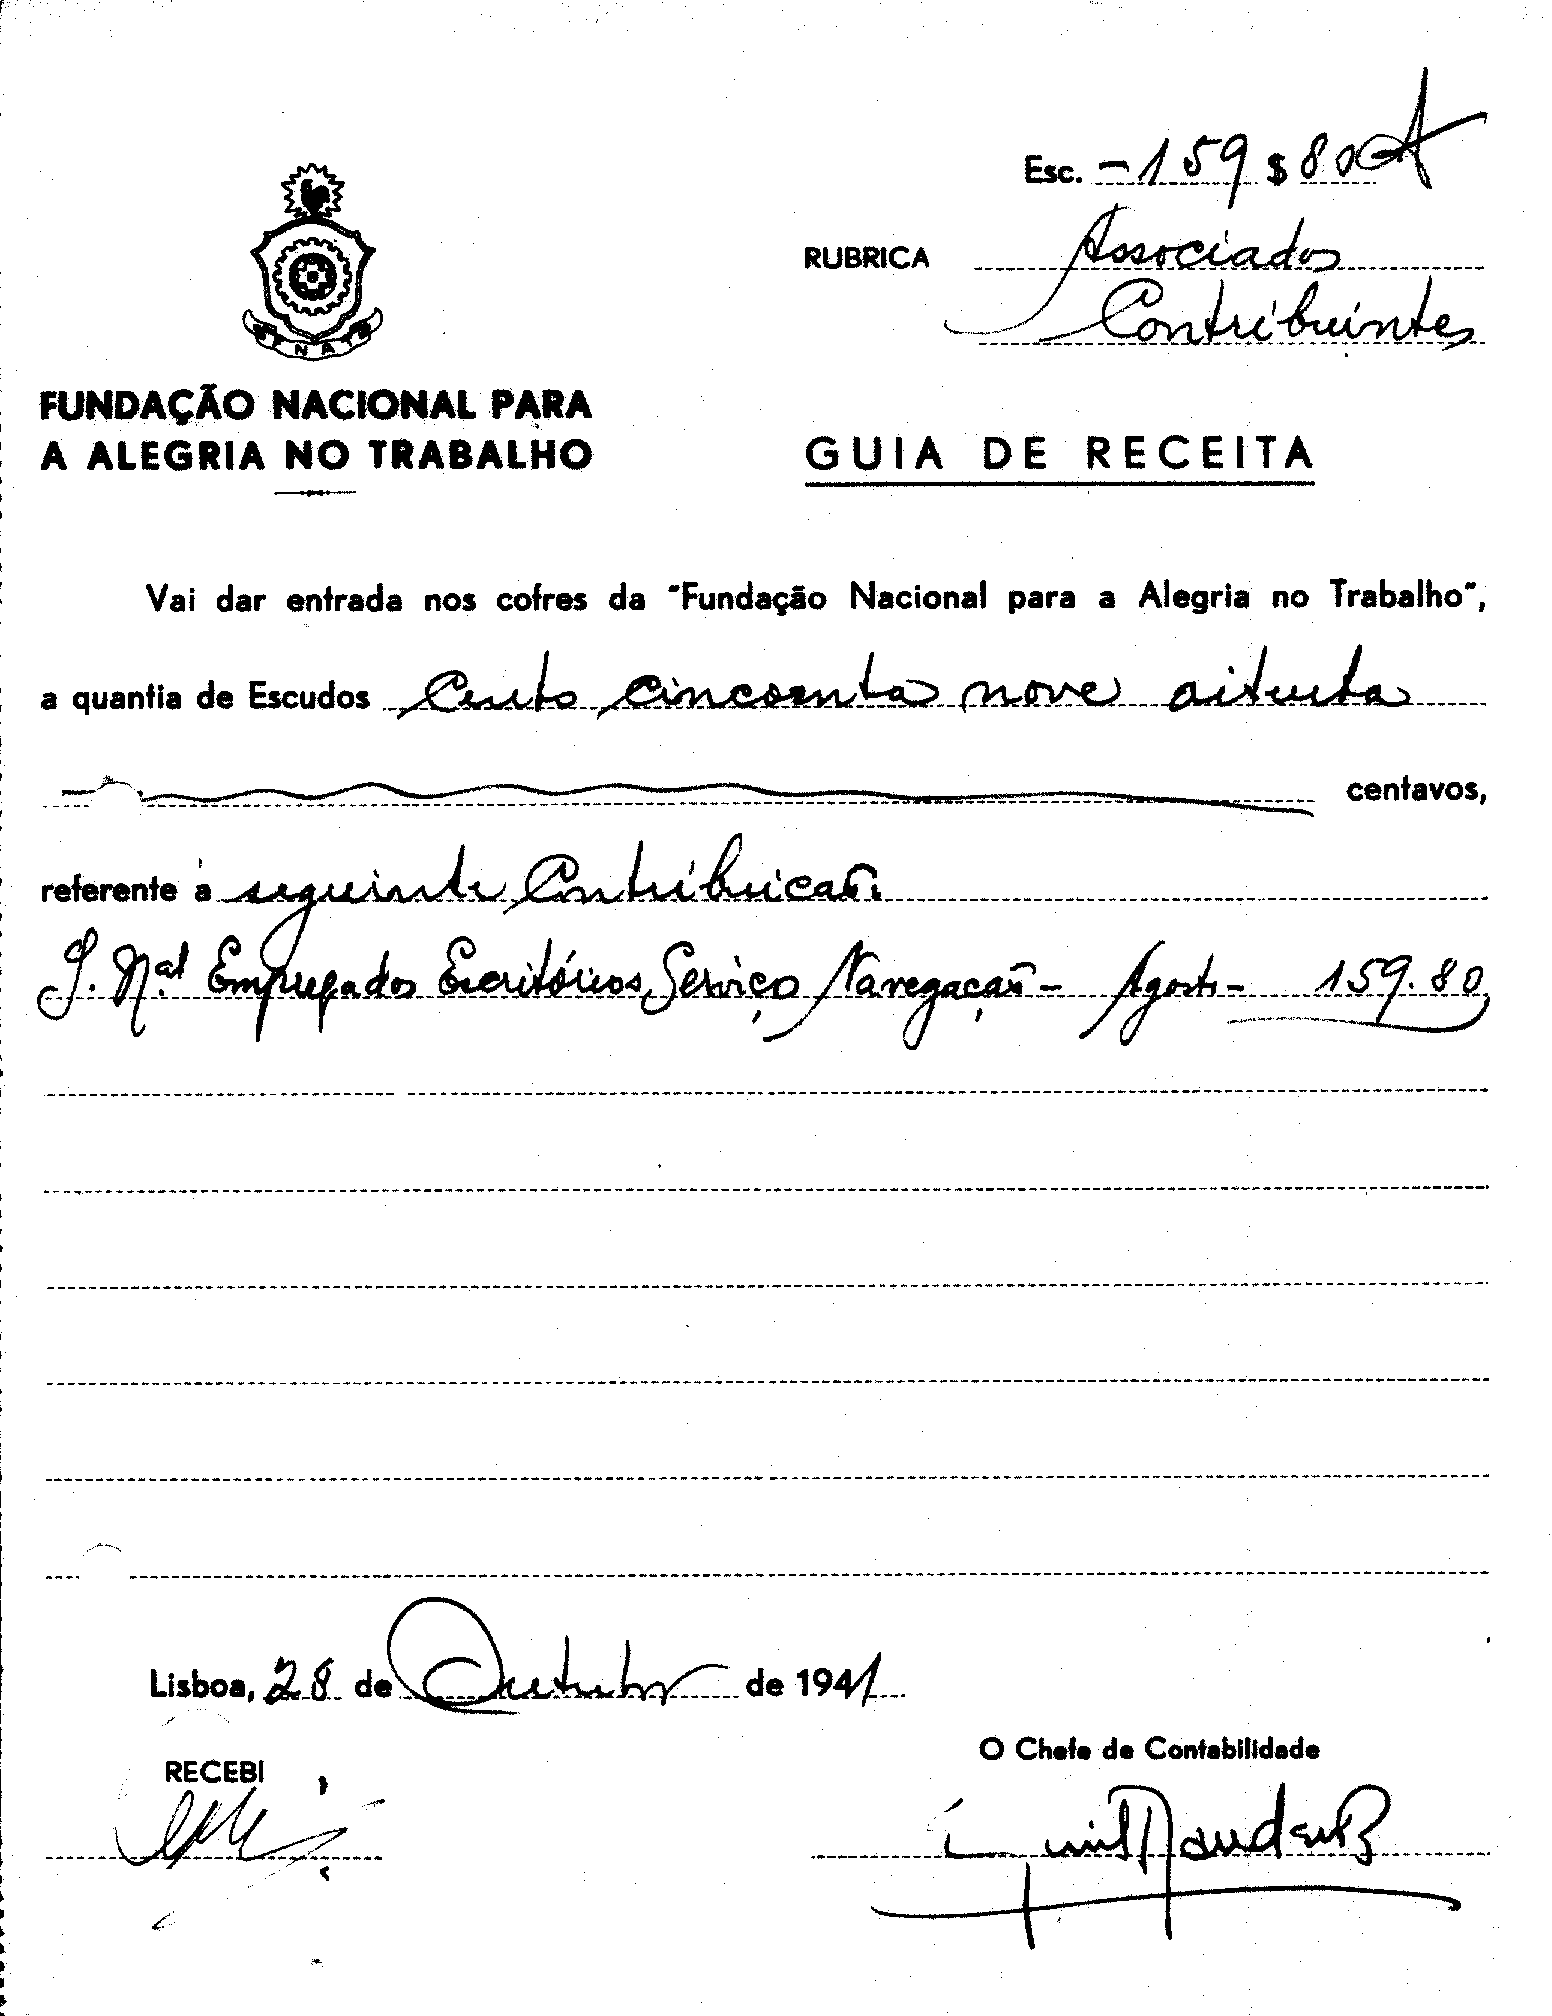 Esc. -159$80
RUBRICA Associados
Contribuintes
FENAT
FUNDAÇÃO NACIONAL PARA
A ALEGRIA NO TRABALHO
GUIA DE RECEITA
Vai dar entrada nos cofres da "Fundação Nacional para a Alegria no Trabalho",
a quantia de Escudos Cento cincoenta nove oitenta
centavos,
referente à seguinte Contribuicão:
S. N.al Empregados Escritórios Serviço Navegação - Agosto - 159.80
Lisboa, 28 de Outubro de 1941
O Chefe de Contabilidade
RECEBI